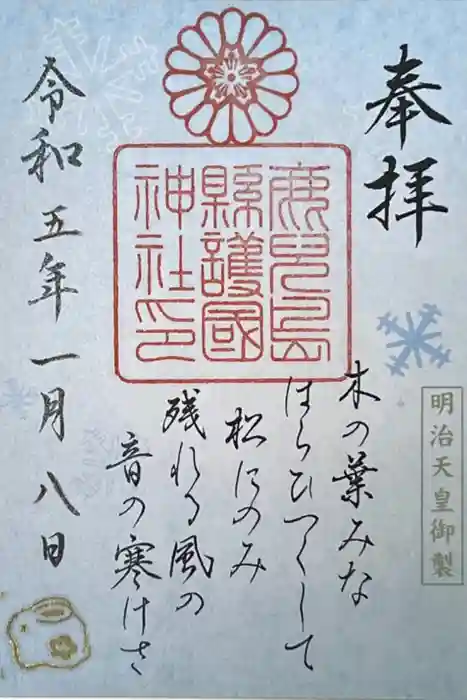 奉拝
鹿児島
縣護國
神社印
明治天皇御製
木の葉みな
はらひつくして
松にのみ
残れる風の
音の寒けさ
令和五年一月八日